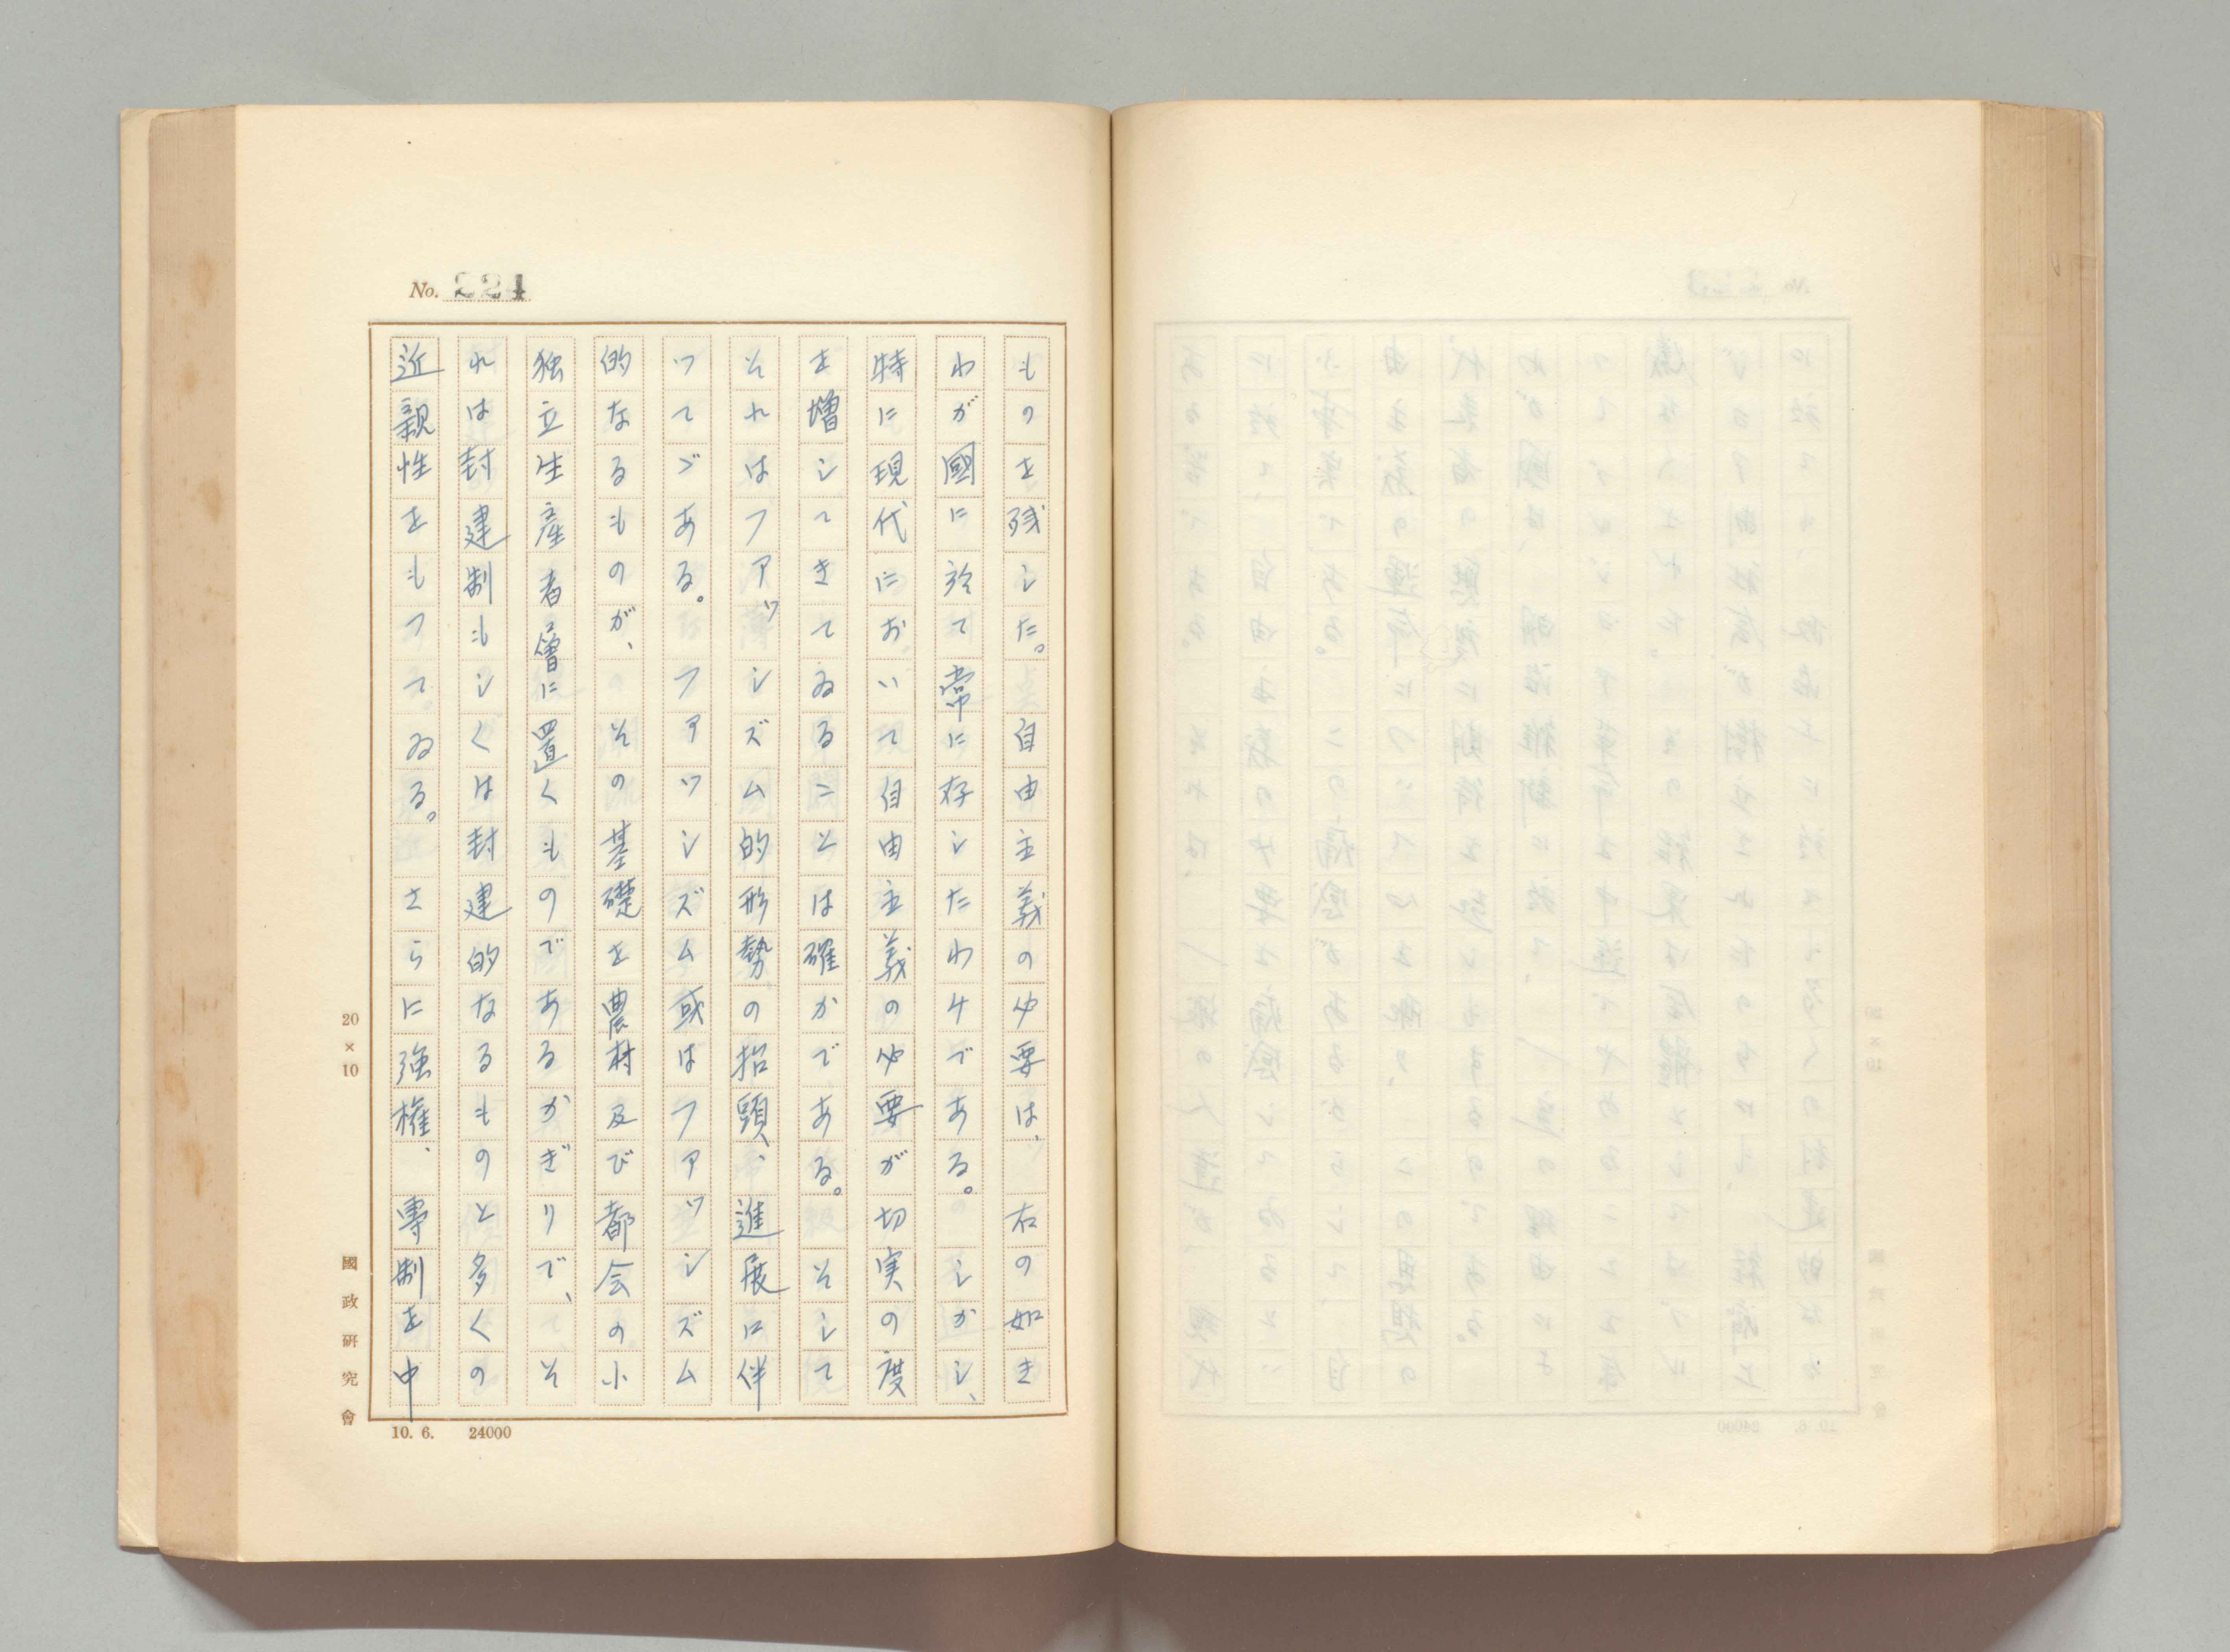 No. 224
ものを残した。自由主義の必要は、右の如き
わが國に於て常に存したわけである。しかし、
特に現代において自由主義の必要が切実の度
を増してきてゐることは確かである。そして
それはファッシズム的形勢の抬頭、進展に伴
つてゞある。ファッシズム或はファッシズム
的なるものが、その基礎を農村及び都会の小
独立生産者層に置くものであるかぎりで、そ
れは封建制もしくは封建的なるものと多くの
近親性をもつてゐる。さらに強権、專制を中
20×10
國政研究會
10. 6. 24000